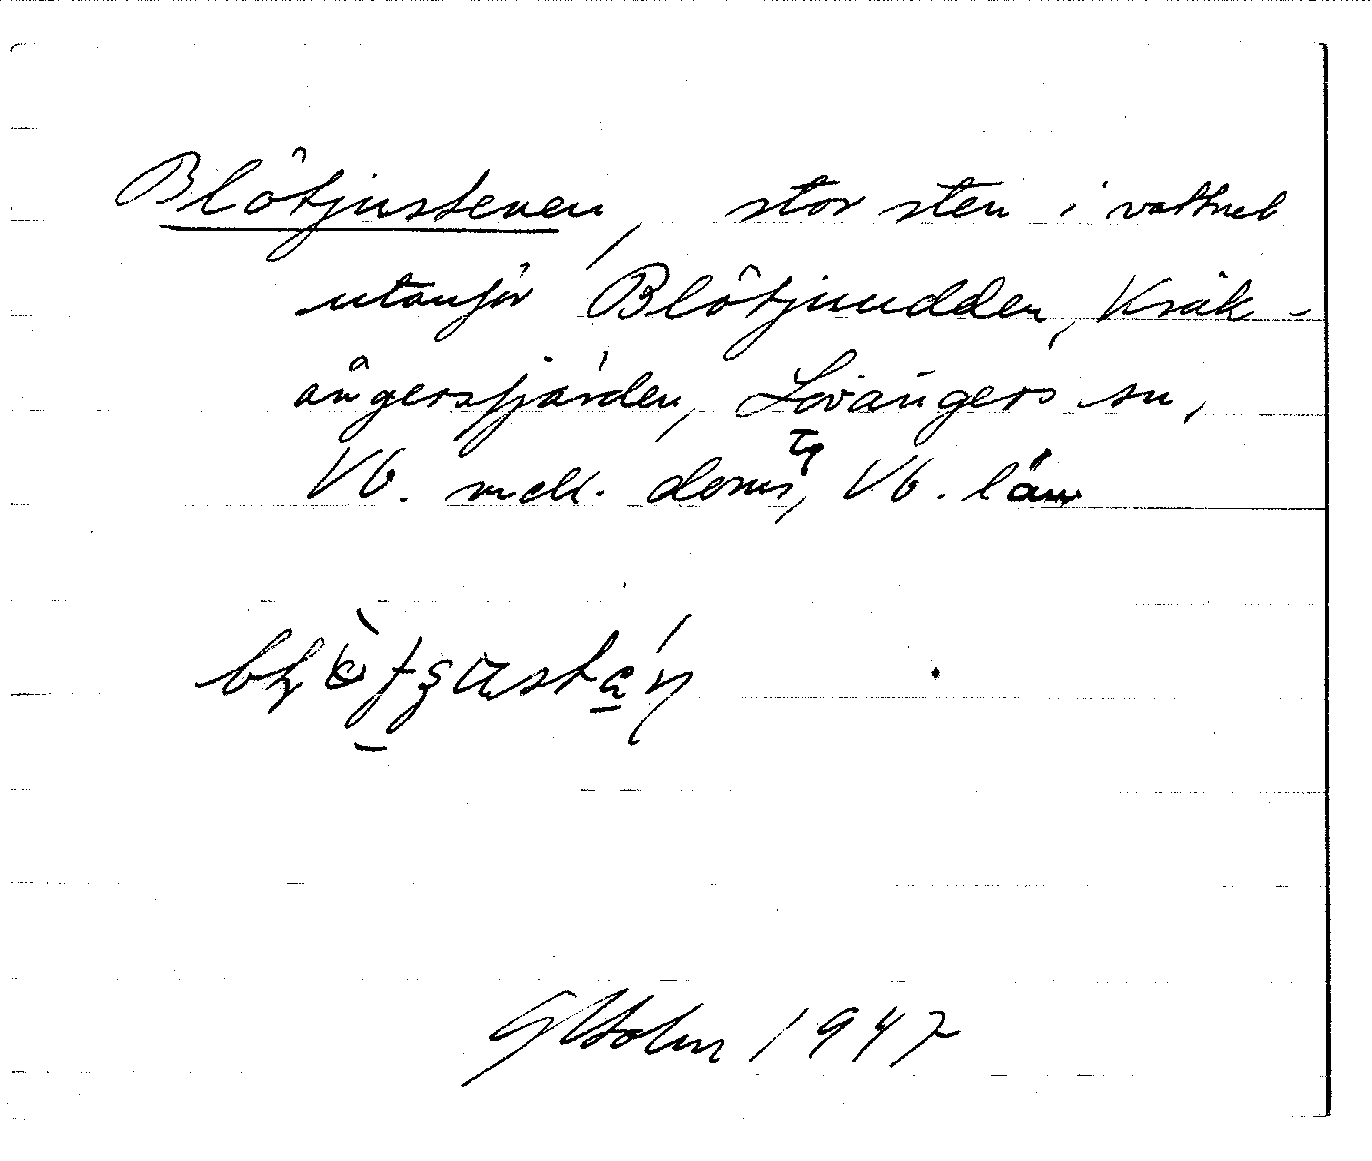 Blötjustenen, stor sten i vattnet
utanför Blötjuudden, Kräk-
ångersfjärden, Lövångers sn,
Vb. mell. doms, Vb. län
Holm 1947